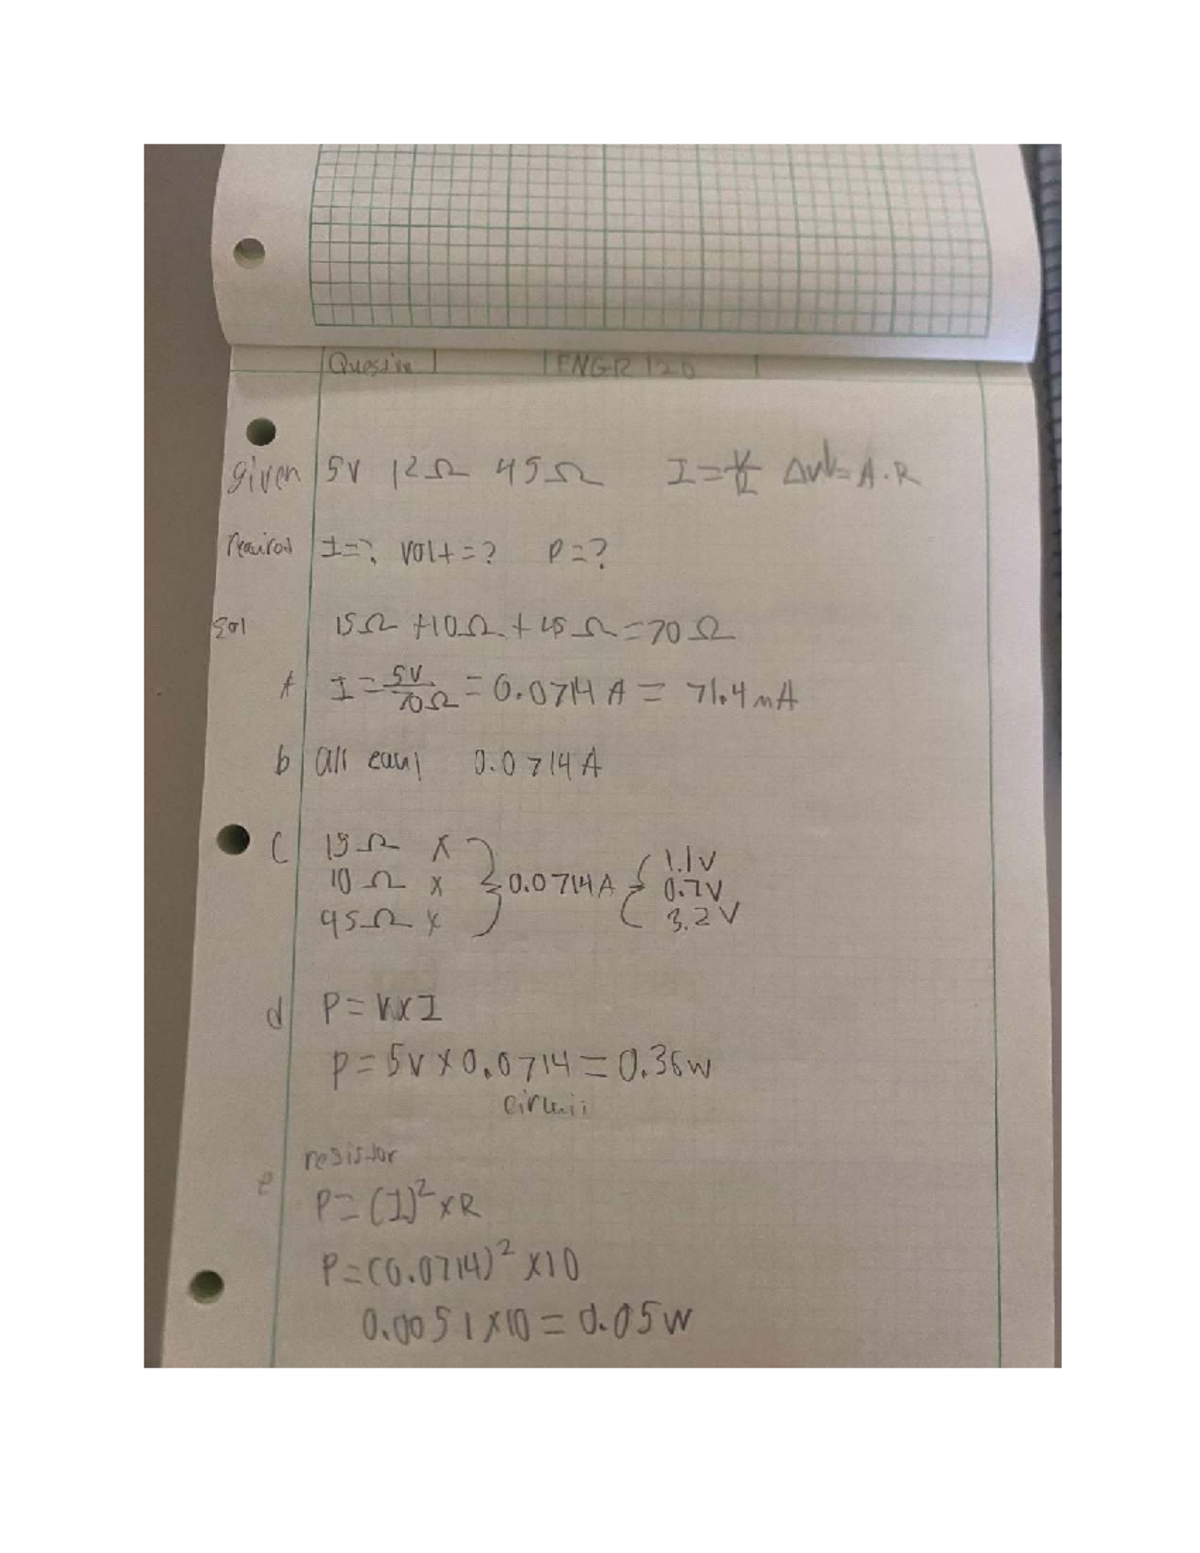 Question 1 ENGR 120
given 5V 12Ω 45Ω I=V/R
Required I=? Volt=? P=?
Sol 15Ω +10Ω + 45Ω=70Ω
A I=5V/70Ω = 0.0714 A = 71.4 mA
b all equl 0.0714 A
C 15Ω x
10Ω x } 0.0714 A { 1.1V
45Ω x 0.7V
3.2V
d P=VxI
P=5V x 0.0714=0.36w
resistor
e P=(I)²xR
P=(0.0714)² x10
0.0051x10=0.05w